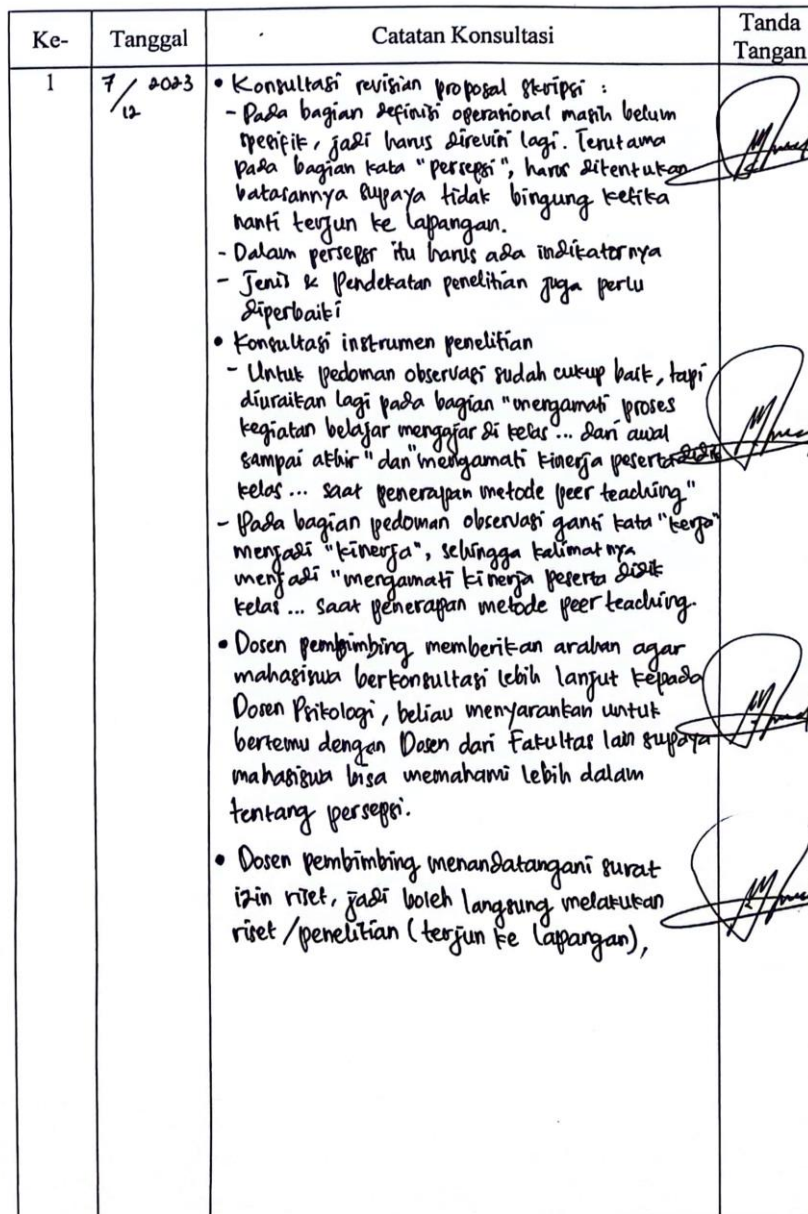 Ke-
Tanggal
Catatan Konsultasi
Tanda
Tangan
1
7/12 2023
• Konsultasi revisian proposal skripsi :
- Pada bagian definisi operasional masih belum
spesifik, jadi harus direvisi lagi. Terutama
pada bagian kata "persepsi", harus ditentukan
batasannya supaya tidak bingung ketika
nanti terjun ke lapangan.
- Dalam persepsi itu harus ada indikatornya
- Jenis & Pendekatan penelitian juga perlu
diperbaiki
• Konsultasi instrumen penelitian
- Untuk pedoman observasi sudah cukup baik, tapi
diuraikan lagi pada bagian "mengamati proses
kegiatan belajar mengajar di kelas ... dari awal
sampai akhir" dan "mengamati kinerja peserta didik
kelas ... saat penerapan metode peer teaching"
- Pada bagian pedoman observasi ganti kata "kerja"
menjadi "kinerja", sehingga kalimatnya
menjadi "mengamati kinerja peserta didik
kelas ... saat penerapan metode peer teaching.
• Dosen pembimbing memberikan arahan agar
mahasiswa berkonsultasi lebih lanjut kepada
Dosen Psikologi, beliau menyarankan untuk
bertemu dengan Dosen dari Fakultas lain supaya
mahasiswa bisa memahami lebih dalam
tentang persepsi.
• Dosen pembimbing menandatangani surat
izin riset, jadi boleh langsung melakukan
riset/penelitian (terjun ke lapangan),